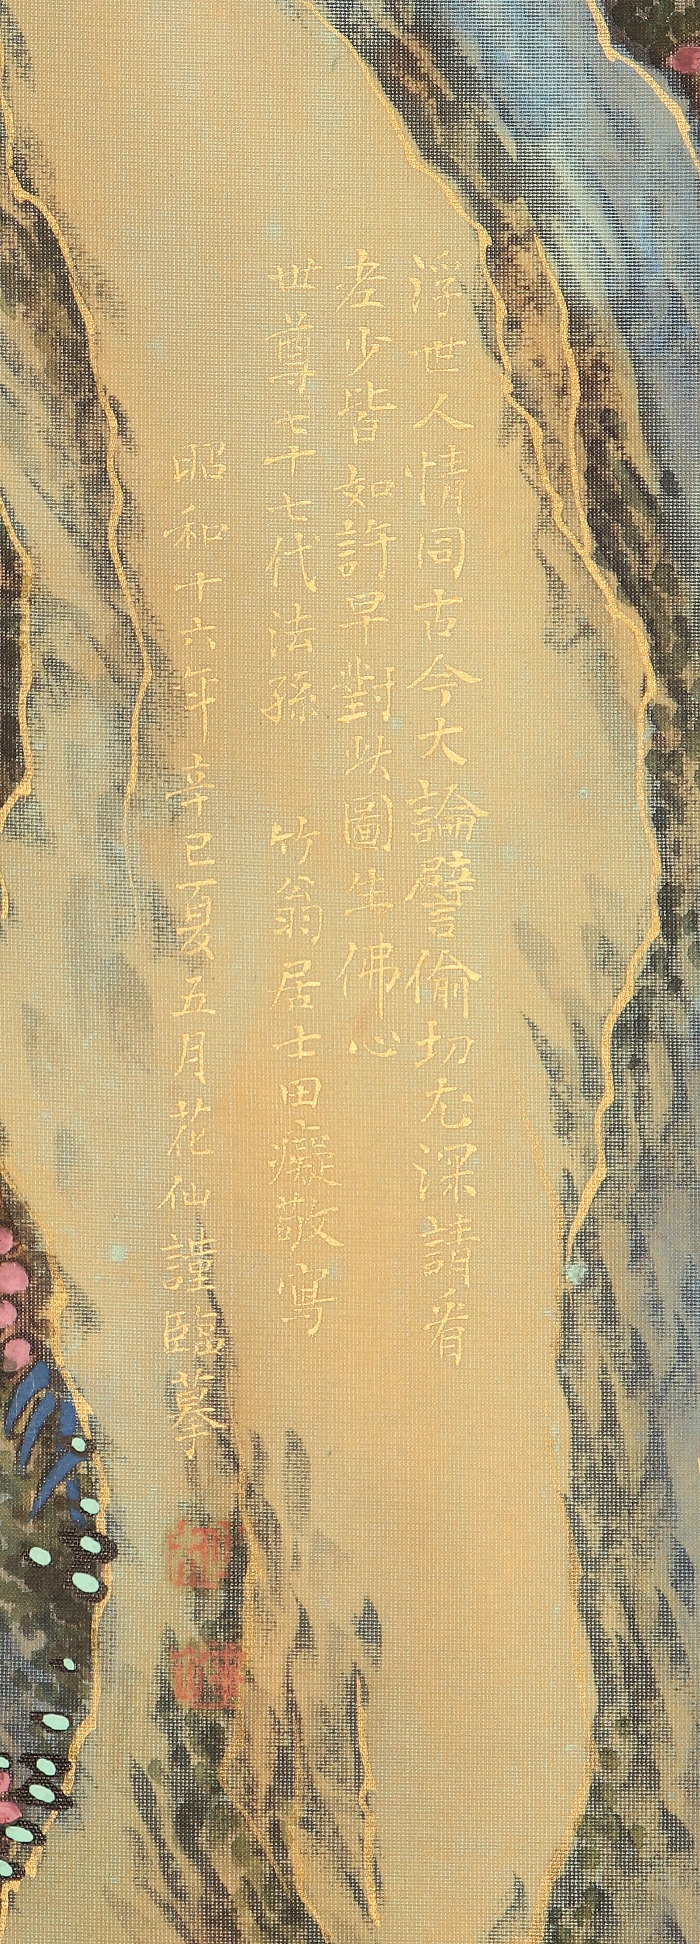 浮世人情同古今大論譬偷切尤深請看
老少皆如許早對此圖生佛心
世尊七十七代法孫　竹翁居士田癡敬寫
昭和十六年辛巳夏五月花仙謹臨摹